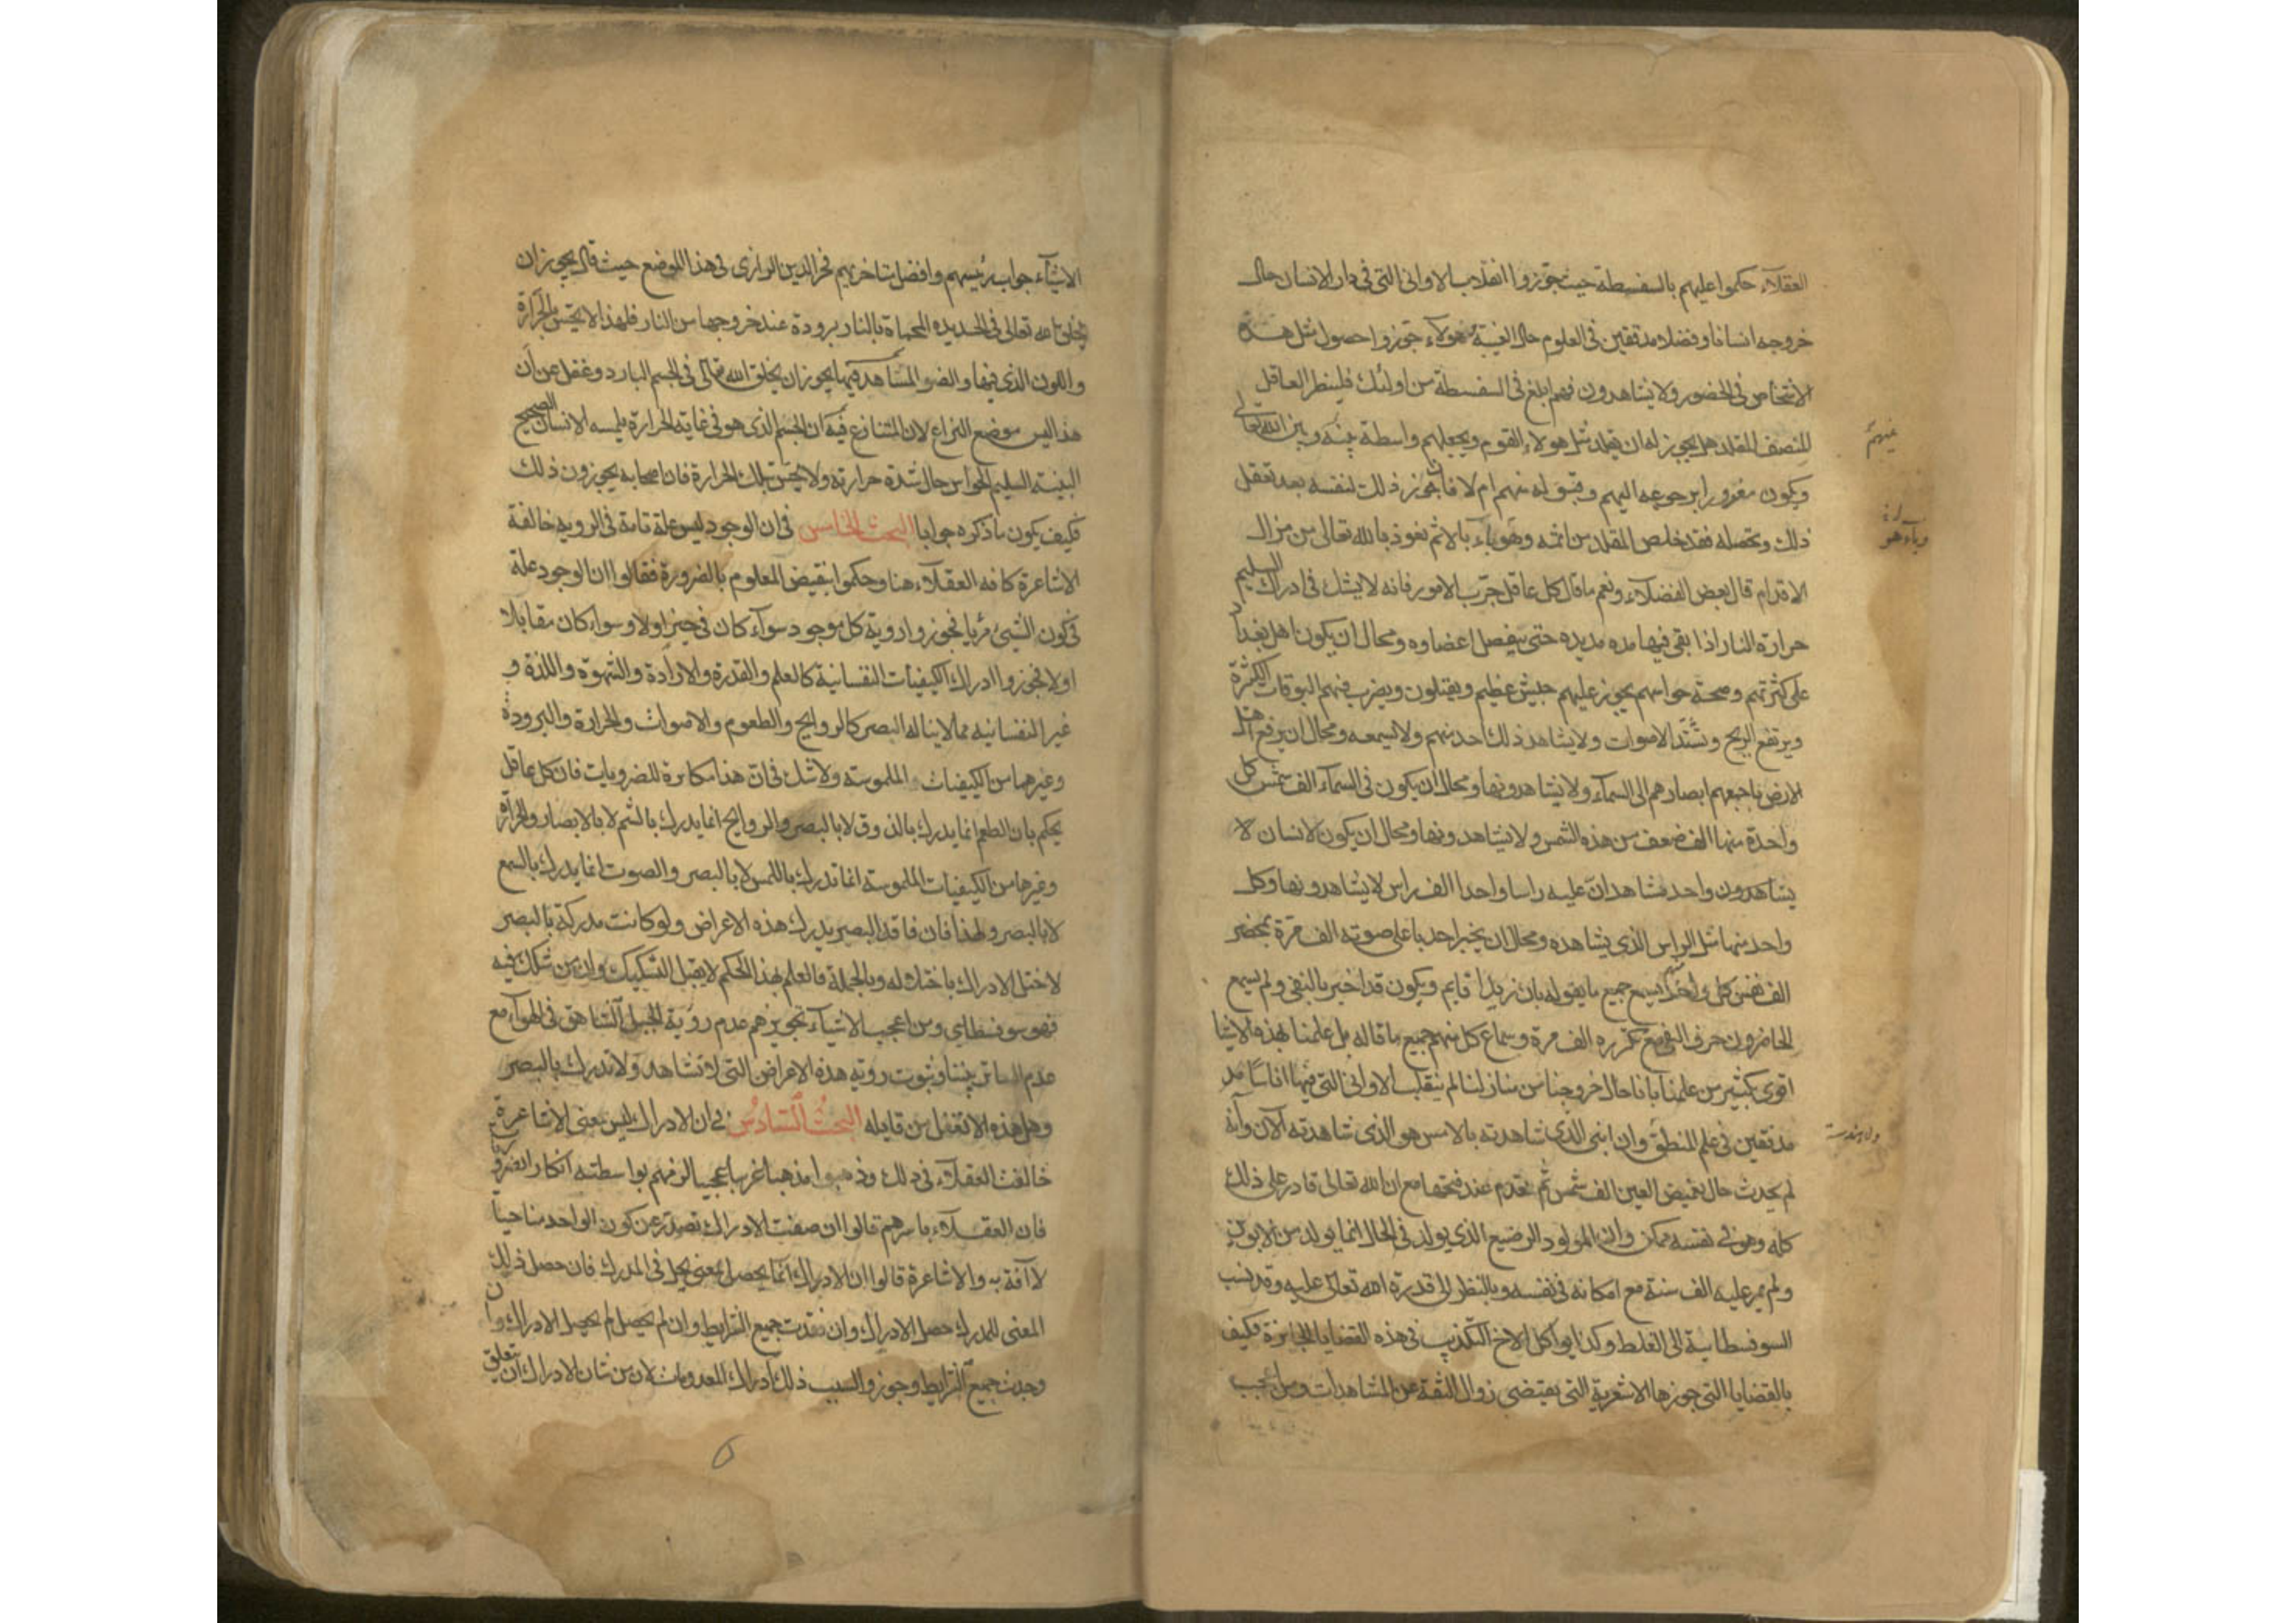 العقلاء حكموا عليهم بالسفسطة حيث جوزوا انقلاب الاوانى التى فى دار الانسان حال
خروجه اناسا وفضلا مدققين فى العلوم حال الغيبة وهولاء جوزوا حصول مثل هذه
الاشخاص فى الحضور ولا يشاهدون فهم ابلغ فى السفسطة من اولئك فلينظر العاقل
المنصف المقلد هل يجوز له ان يقلد مثل هولاء القوم ويجعلهم واسطة بينه وبين الله تعالى
ويكون معذورا برجوعه اليهم وقبوله منهم ام لا فان جوز ذلك لنفسه بعد تعقل
ذلك وتحصله فقد خلص المقلد من اثمه وهو باء بالاثم نعوذ بالله تعالى من مزال
الاقدام قال بعض الفضلاء ونعم ما قال كل عاقل جرب الامور فانه لا يشك فى ادراك السليم
حرارة النار اذا بقى فيها مده مديده حتى ينفصل اعضاوه ومحال ان يكون اهل بغداد
على كثرتهم وصحة حواسهم يجوز عليهم جيش عظيم ويقتلون ويضرب فيهم البوقات الكثيرة
ويرتفع الريح وتشتد الاصوات ولا يشاهد ذلك احد منهم ولا يسمعه ومحال ان يرفع اهل
الارض باجمعهم ابصارهم الى السماء ولا يشاهدونها ومحال ان يكون فى السماء الف شمس كل
واحدة منها الف ضعف من هذه الشمس ولا يشاهدونها ومحال ان يكون لانسان لا
يشاهدون واحد مشاهد ان عليه راسا واحدا الف راس لا يشاهدونها وكل
واحد منها مثل الراس الذى يشاهده ومحال ان يخبر احد باعلى صوته الف مرة بمحضر
الف نفس كل واحد منهم يسمع جميع ما يقوله بان زيدا قايم ويكون قد اخبر بالنفى ولم يسمع
الحاضرون حرف النفى مع تكرره الف مرة وسماع كل منهم جميع ما قاله بل علمنا بهذه الاشيا
اقوى بكثير من علمنا بانا حال خروجنا من منازلنا لم ينقلب الاوانى التى فيها اناسا مد
مدققين فى علم المنطق وان ابنى الذى شاهدته بالامس هو الذى شاهدته الآن وانه
لم يحدث حال تغميض العين الف شمس ثم تقدم عند فتحها مع ان الله تعالى قادر على ذلك
كله وهو فى نفسه ممكن وان المولود الرضيع الذى يولد فى الحال انما يولد من الابوين
ولم يمر عليه الف سنة مع امكانه فى نفسه وبالنظر الى قدرة الله تعالى عليه وقد نسب
السوفسطاىية الى الغلط وكذبوا كل التكذيب فى هذه القضايا الجايزة فكيف
بالقضايا التى جوزها الاشعرية التى يقتضى زوال الثقة عن المشاهدات ومن اعجب
منهم
وباء هو
والهندسة
الاشياء جواب رئيسهم وافضل متاخريهم فخر الدين الرازى فى هذا الموضع حيث قال يجوز ان
يخلق الله تعالى فى الحديده المحماة بالنار برودة عند خروجها من النار فلهذا لا يحس بالحرارة
واللون الذى فيها والضو المشاهد فيها يجوز ان يخلق الله تعالى فى الجسم البارد وغفل عن ان
هذا ليس موضع النزاع لان المتنازع فيه ان الجسم الذى هو فى غاية الحرارة يلمسه الانسان الصحيح
البنيته السليم الحواس حال شدة حرارته ولا يحس بتلك الحرارة فان اصحابه يجوزون ذلك
فكيف يكون ما ذكره جوابا البحث الخامس فى ان الوجود ليس علة تامة فى الرويه خالفة
الاشاعرة كافه العقلاء هنا وحكموا بنقيض المعلوم بالضرورة فقالوا ان الوجود علة
فى كون الشيئ مرئيا فجوزوا روية كل موجود سواء كان فى حيز اولا وسواء كان مقابلا
اولا فجوزوا ادراك الكيفيات النفسانية كالعلم والقدرة والارادة والشهوة واللذة و
غير النفسانيه مما لا يناله البصر كالروايح والطعوم والاصوات والحرارة والبرودة
وغيرهما من الكيفيات الملموسة ولا شك فى ان هذا مكابرة للضروريات فان كل عاقل
يحكم بان الطعم انما يدرك بالذوق لا بالبصر والروايح انما يدرك بالشم لا بالابصار والحرارة
وغيرها من الكيفيات الملموسة انما تدرك باللمس لا بالبصر والصوت انما يدرك بالسمع
لا بالبصر ولهذا فان فاقد البصر يدرك هذه الاعراض ولو كانت مدركة بالبصر
لاختل الادراك باختلاله وبالجملة فالعلم بهذا الحكم لا يقبل التشكيك وان من شكك فيه
فهو سوفسطاي ومن اعجب الاشياء تجويزهم عدم روية الجبل الشاهق فى الهواء مع
عدم الساتر بيننا وثبوت روية هذه الاعراض التى لا تشاهد ولا تدرك بالبصر
وهل هذه الا تغفل من قايله البحث السادس فى ان الادراك ليس لمعنى الاشاعرة
خالفت العقلاء فى ذلك وذهبوا مذهبا غريبا عجيبا لزمهم بواسطته انكار الضرورة
فان العقلاء باسرهم قالوا ان صفت الادراك تصدر عن كون الواحد منا حيا
لا آفة به والاشاعرة قالوا ان الادراك انما يحصل لمعنى يحل فى المدرك فان حصل ذلك
المعنى للمدرك حصل الادراك وان فقدت جميع الشرايط وان لم يحصل لم يحصل الادراك وان
وجدت جميع الشرايط وجوزوا لسبب ذلك ادراك المعدومات لان من شان الادراك ان يتعلق